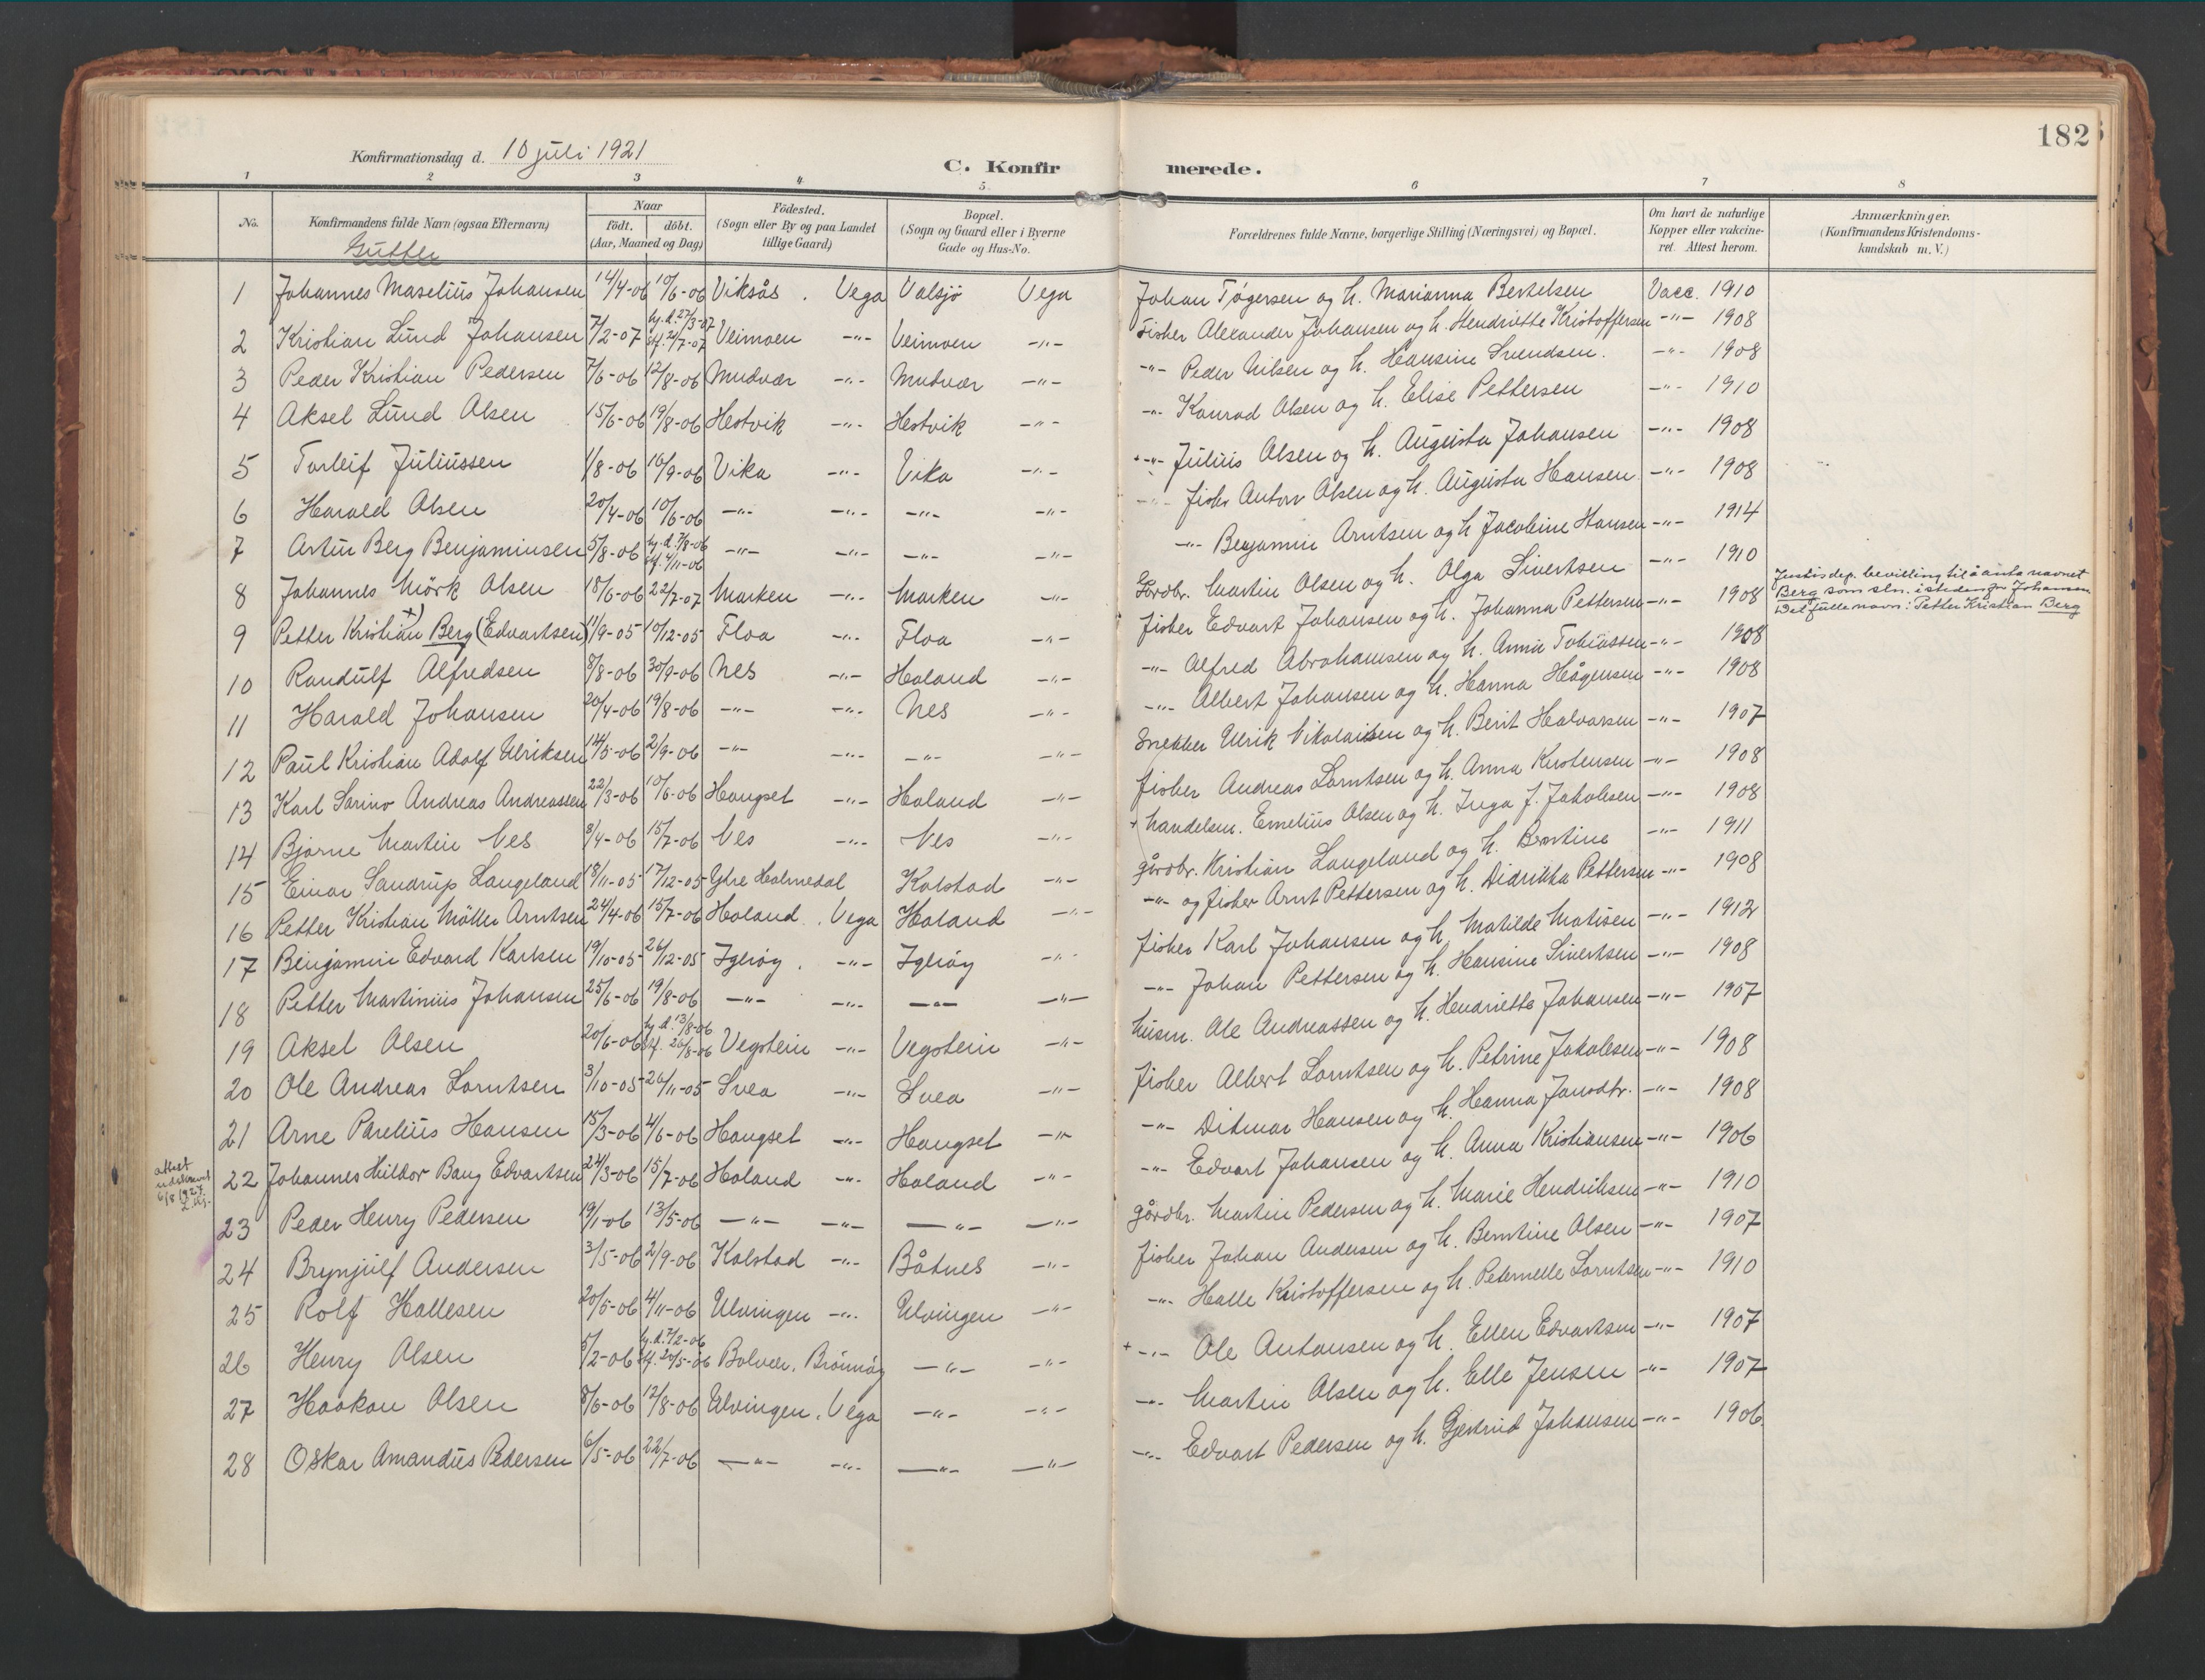 182
Konfirmationsdag d. 10 juli 1921
C. Konfirmerede.
1 2 3 4 5. 6 7 8
No. Konfirmandens fulde Navn (ogsaa Efternavn) Naar födt. döbt. (Aar, Maaned og Dag) Födested. (Sogn eller By og paa Landet tillige Gaard) Bopæl. (Sogn og Gaard eller i Byerne Gade og Hus-No. Forældrenes fulde Navne, borgerlige Stilling (Næringsvei) og Bopæl. Om havt de naturlige Kopper eller vakcineret. Attest herom. Anmærkninger. (Konfirmandens Kristendomskundskab m. V.)
Gutter
1 Johannes Maselius Johansen 14/4-06 10/6-06 Viksås . Vega Valsjö Vega Johan Tøgersen og h. Marianna Bertelsen Vacc. 1910
2 Kristian Lund Johansen 7/2-07 hj.d. 27/3-07 stf. 21/7-07 Veimoen -"- Veimoen -"- Fisker Alexander Johansen og h. Hendriette Kristoffersen -"- 1908
3 Peder Kristian Pedersen 7/6-06 12/8-06 Mudvær -"- Mudvær -"- -"- Peder Nilsen og h. Hansine Svendsen. -"- 1908
4 Aksel Lund Olsen 15/6-06 19/8-06 Hestvik -"- Hestvik -"- -"- Konrad Olsen og h. Elise Pettersen -"- 1910
5 Torleif Juliussen 1/8-06 16/9-06 Vika -"- Vika -"- + -"- Julius Olsen og h. Augusta Johansen -"- 1908
6 Harald Olsen 20/4-06 10/6-06 -"- -"- -"- -"- -"- fisker Anton Olsen og h. Augusta Hansen -"- 1908
7 Artur Berg Benjaminsen 5/8-06 hj.d. 7/8-06 stf. 4/11-06 -"- -"- -"- -"- -"- Benjamin Arntsen og h Jacobine Hansen -"- 1914
8 Johannes Mörk Olsen 18/6-06 22/7-07 Marken -"- Marken -"- Gårdbr. Martin Olsen og h. Olga Sivertsen -"- 1910
9 Petter Kristian +) Berg (Edvartsen) 11/9-05 10/12-05 Floa -"- Floa -"- fisker Edvart Johansen og h. Johanna Pettersen -"- 1908 Justisdep. bevilling til å anta navnet Berg som sln. i steden for Johansen Det fulle navn: Petter Kristian Berg
10 Randulf Alfredsen 8/8-06 30/9-06 Nes -"- Haland -"- -"- Alfred Abrahamsen og h. Anna Tobiassen -"- 1908
11 Harald Johansen 20/4-06 19/8-06 -"- -"- Nes -"- -"- Albert Johansen og h. Hanna Hågensen -"- 1908
12 Paul Kristian Adolf Ulriksen 14/5-06 2/9-06 -"- -"- -"- -"- Snekker Ulrik Nikolaisen og h. Berit Halvorsen -"- 1907
13 Karl Sarino Andreas Andreassen 22/3-06 10/6-06 Hongset -"- Haland -"- fisker Andreas Lorntsen og h. Anna Kristensen -"- 1908
14 Bjarne Martin Nes 8/4-06 15/7-06 Nes -"- Nes -"- + handelsm. Emelius Olsen og h. Inga J. Jakobsen -"- 1908
15 Einar Sandrup Langeland 18/11-05 17/12-05 Ytre Holmedal Kolstad -"- gårdbr. Kristian Langeland og h. Bertine -"- 1911
16 Petter Kristian Möller Arntsen 24/4-06 15/7-06 Haland . Vega Haland -"- -"- og fisker Arnt Pettersen og h. Didrikka Pettersen -"- 1908
17 Benjamin Edvard Karlsen 19/10-05 26/12-05 Igeröy . -"- Igeröy -"- fisker Karl Johansen og h. Matilde Matisen -"- 1912
18 Petter Martinius Johansen 25/6-06 19/8-06 -"- -"- -"- -"- -"- Johan Pettersen og h. Hansine Sivertsen -"- 1908
19 Aksel Olsen 20/6-06 hj.d. 13/8-06 stf. 26/8-06 Vegstein -"- Vegstein -"- husm. Ole Andreassen og h. Hendriette Johansen -"- 1907
20 Ole Andreas Lorntsen 3/10-05 26/11-05 Svea -"- Svea -"- fisker Albert Lorntsen og h. Petrine Jakobsen -"- 1908
21 Arne Parelius Hansen 15/3-06 4/6-06 Hongset -"- Hongset -"- -"- Ditmar Hansen og h. Hanna Jansdtr. -"- 1908
attest 6/8 1927.
22 Johannes Hildor Bang Edvartsen 24/3-06 15/7-06 Haland -"- Haland -"- -"- Edvart Johansen og h. Anna Kristiansen -"- 1906
23 Peder Henry Pedersen 19/1-06 13/5-06 -"- -"- -"- -"- gårdbr. Martin Pedersen og h. Marie Hendriksen -"- 1910
24 Brynjulf Andersen 3/5-06 2/9-06 Kolstad -"- Båtnes -"- fisker Johan Andersen og h. Berntine Olsen -"- 1907
25 Rolf Hallesen 20/5-06 4/11-06 Ulvingen -"- Ulvingen -"- -"- Halle Kristoffersen og h. Peternelle Lorntsen -"- 1910
26 Henry Olsen 5/2-06 hj.d. 7/2-06 stf. 20/5-06 Bolvær, Brönnöy -"- -"- + -"- Ole Antonsen og h. Ellen Edvartsen -"- 1907
27 Haakon Olsen 8/6-06 12/8-06 Ulvingen, Vega -"- -"- -"- Martin Olsen og h. Elle Jensen -"- 1907
28 Oskar Amandus Pedersen 6/5-06 22/7-06 -"- -"- -"- -"- -"- Edvart Pedersen og h. Gjertrud Johansen -"- 1906